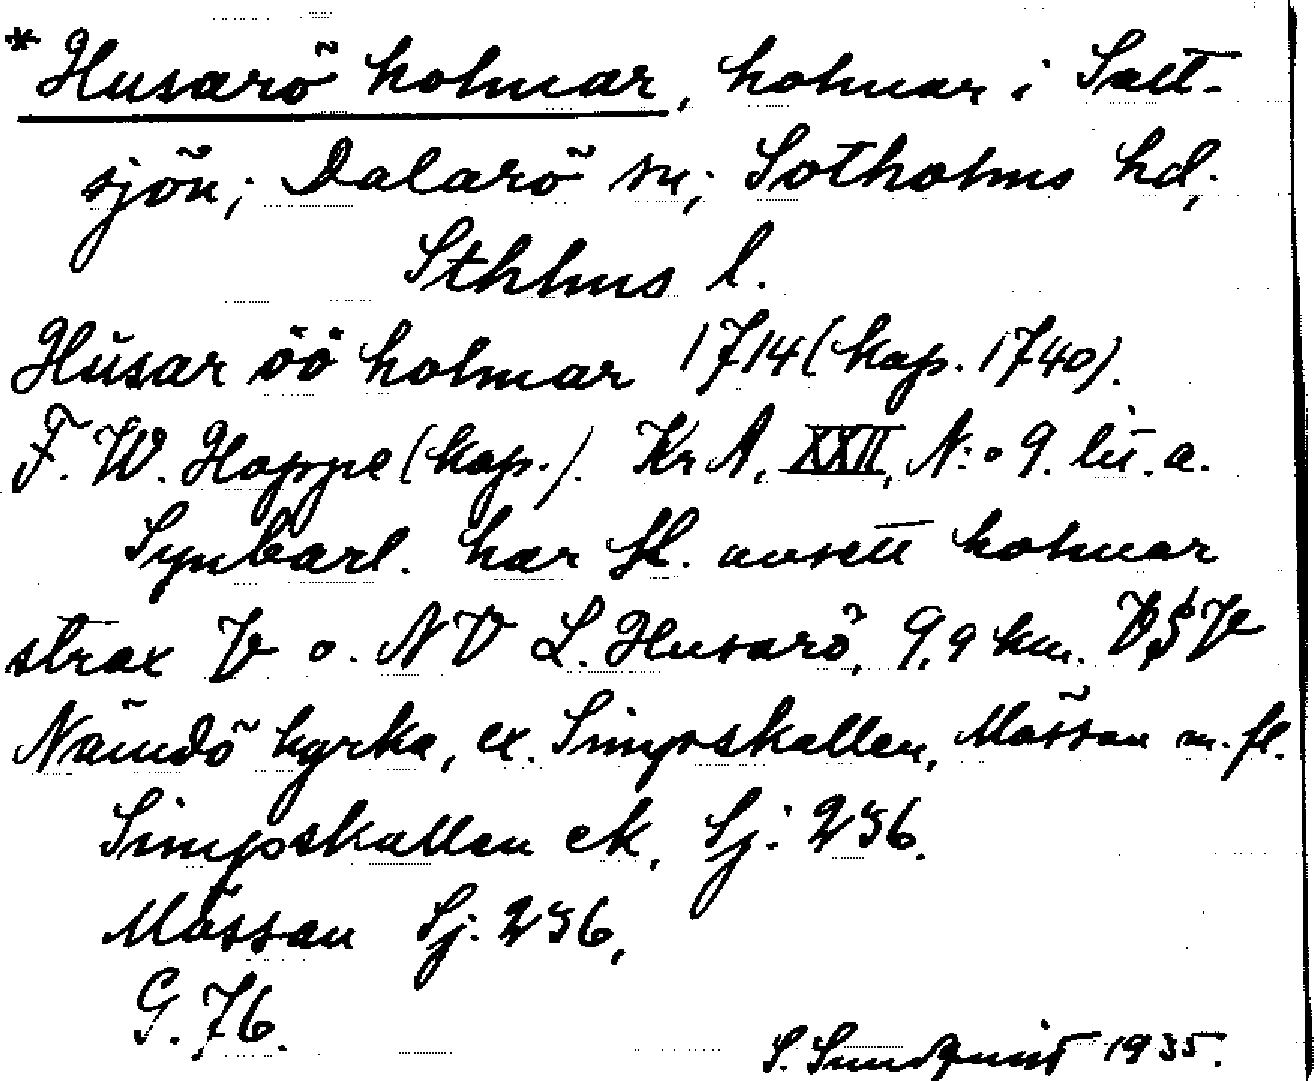 *Husarö holmar, holmar i Salt-
sjön; Dalarö sn; Sotholms hd,
Sthlms l.
Husar öö holmar 1714 (kop. 1740).
F. W. Hoppe (kop.). KrA, XXII, N:o 9. lit. a.
Synbarl. har H. avsett holmar
strax V o. NV L. Husarö, 9,9 km. VSV
Nämdö kyrka, ex. Simpskallen, Mässan m. fl.
Simpskallen ek, Sj: 256.
Mässan Sj: 256,
G. 76.
S. Sundquist 1935.